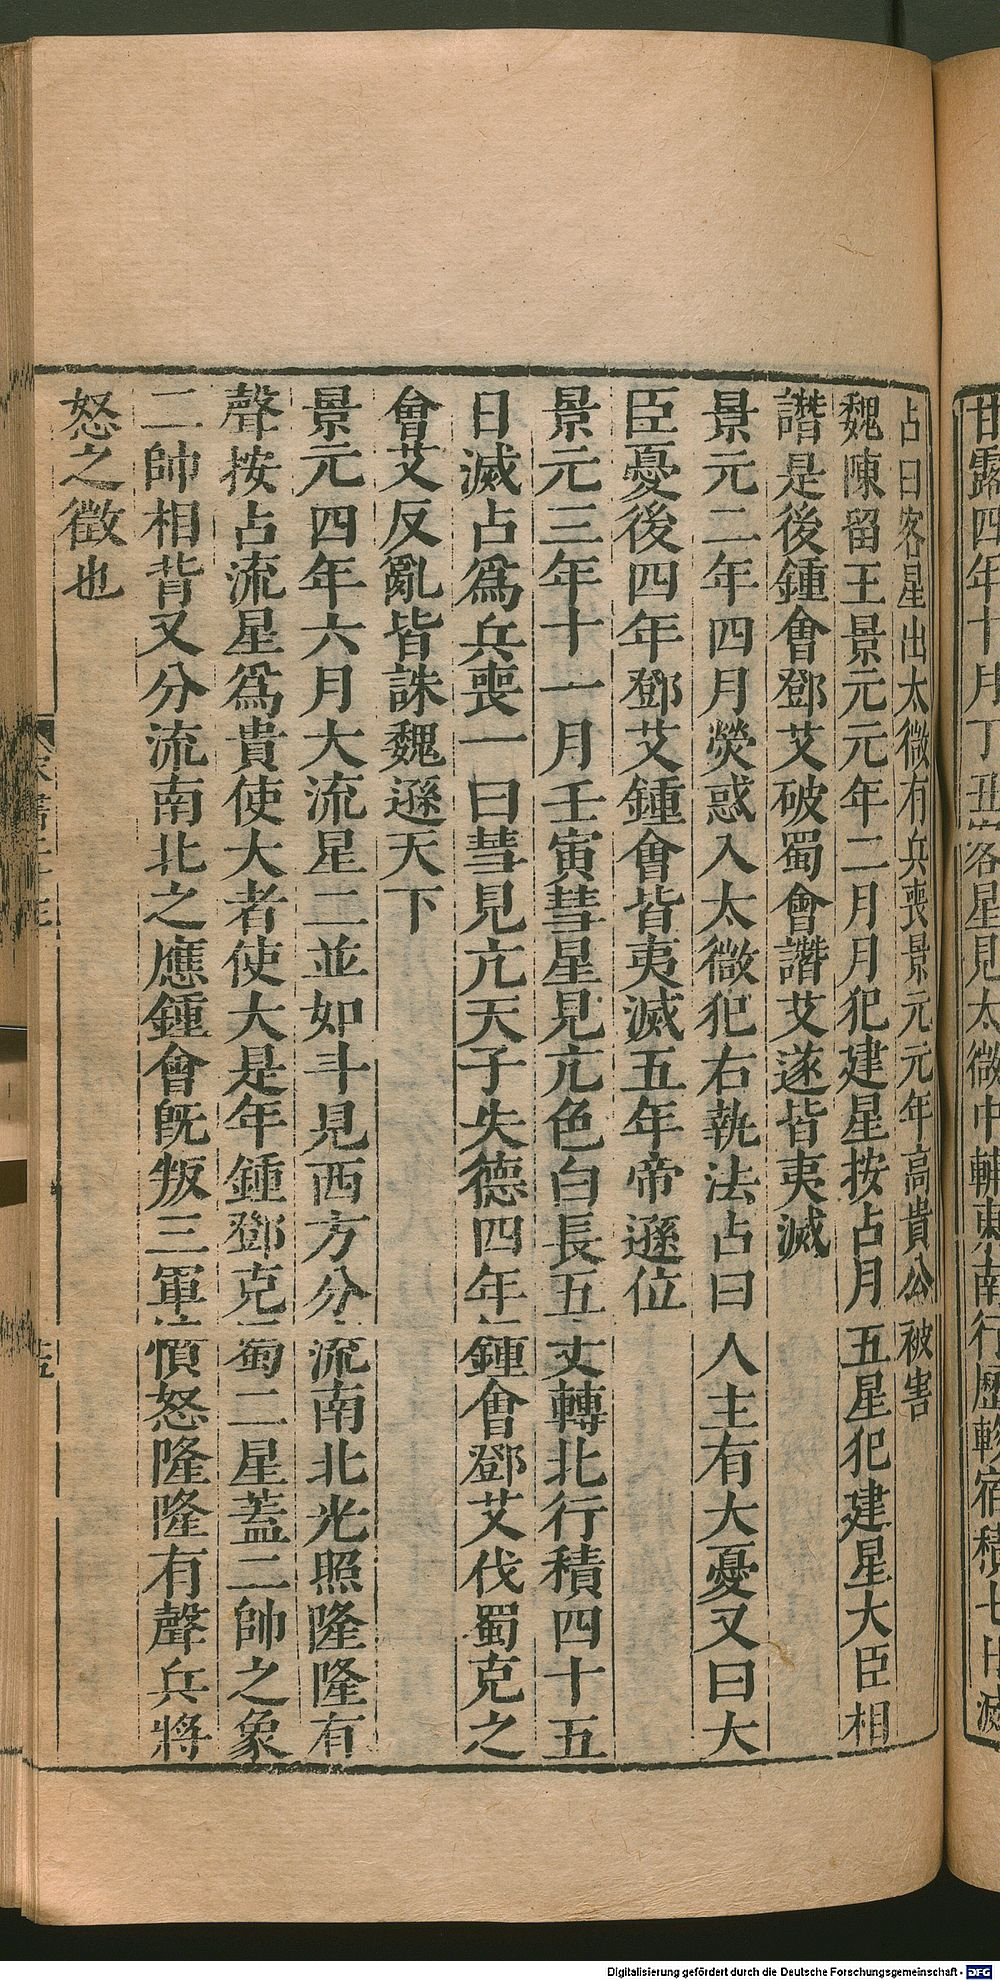 甘露四年十月丁丑客星見太微中轉東南行歷軫宿積七日滅
占曰客星出太微有兵喪景元元年高貴公被害
魏陳留王景元元年二月月犯建星按占月五星犯建星大臣相
譖是後鍾會鄧艾破蜀會譖艾遂皆夷滅
景元二年四月熒惑入太微犯右執法占曰人主有大憂又曰大
臣憂後四年鄧艾鍾會皆夷滅五年帝遜位
景元三年十一月壬寅彗星見亢色白長五丈轉北行積四十五
日滅占爲兵喪一曰彗見亢天子失德四年鍾會鄧艾伐蜀克之
會艾反亂皆誅魏遜天下
景元四年六月大流星二並如斗見西方分流南北光照隆隆有
聲按占流星爲貴使大者使大是年鍾鄧克蜀二星蓋二帥之象
二帥相背又分流南北之應鍾會旣叛三軍憤怒隆隆有聲兵將
怒之徵也
Digitalisierung gefördert durch die Deutsche Forschungsgemeinschaft - DFG